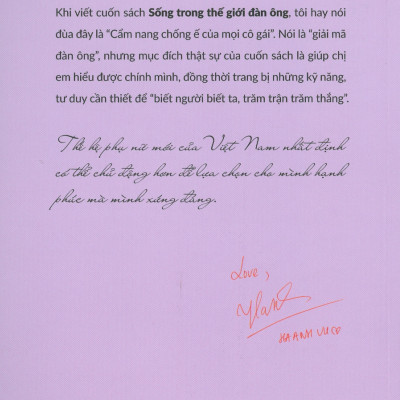 Khi viết cuốn sách Sống trong thế giới đàn ông, tôi hay nói
đùa đây là “Cẩm nang chống ế của mọi cô gái”. Nói là “giải mã
đàn ông”, nhưng mục đích thật sự của cuốn sách là giúp chị
em hiểu được chính mình, đồng thời trang bị những kỹ năng,
tư duy cần thiết để “biết người biết ta, trăm trận trăm thắng”.
Thế hệ phụ nữ mới của Việt Nam nhất định
có thể chủ động hơn để lựa chọn cho mình hạnh
phúc mà mình xứng đáng.
Love,